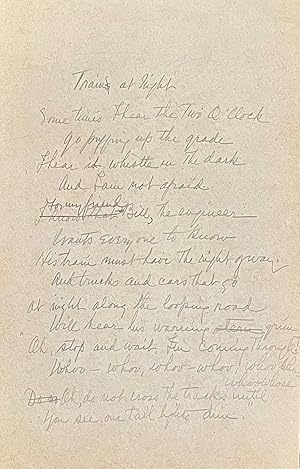 Trains at Night
Sometimes I hear the Two O'Clock
Go puffing up the grade
I hear it whistle in the dark
And I am not afraid
For my friend
I know that Bill, the engineer
Wants everyone to know
His train must have the right of way
And trucks and cars that go
At night along the looping road
Will hear his warning
"Oh, stop and wait, I'm coming through
Whoo - whoo, whoo - whoo, whoo
Oh, do not cross the tracks until
You see, one tall lights